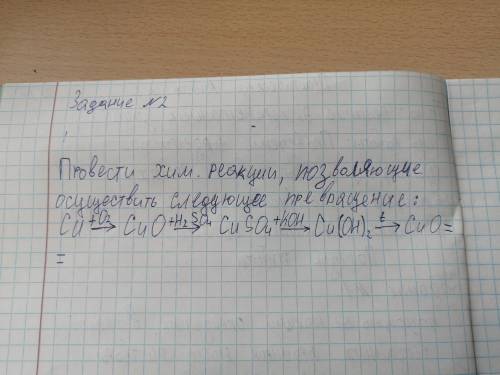 Задание №2
Провести хим. реакции, позволяющие
осуществить следующее превращение:
Cu +O₂→ CuO +H₂SO₄→ CuSO₄ +KOH→ Cu(OH)₂ t→ CuO=
=